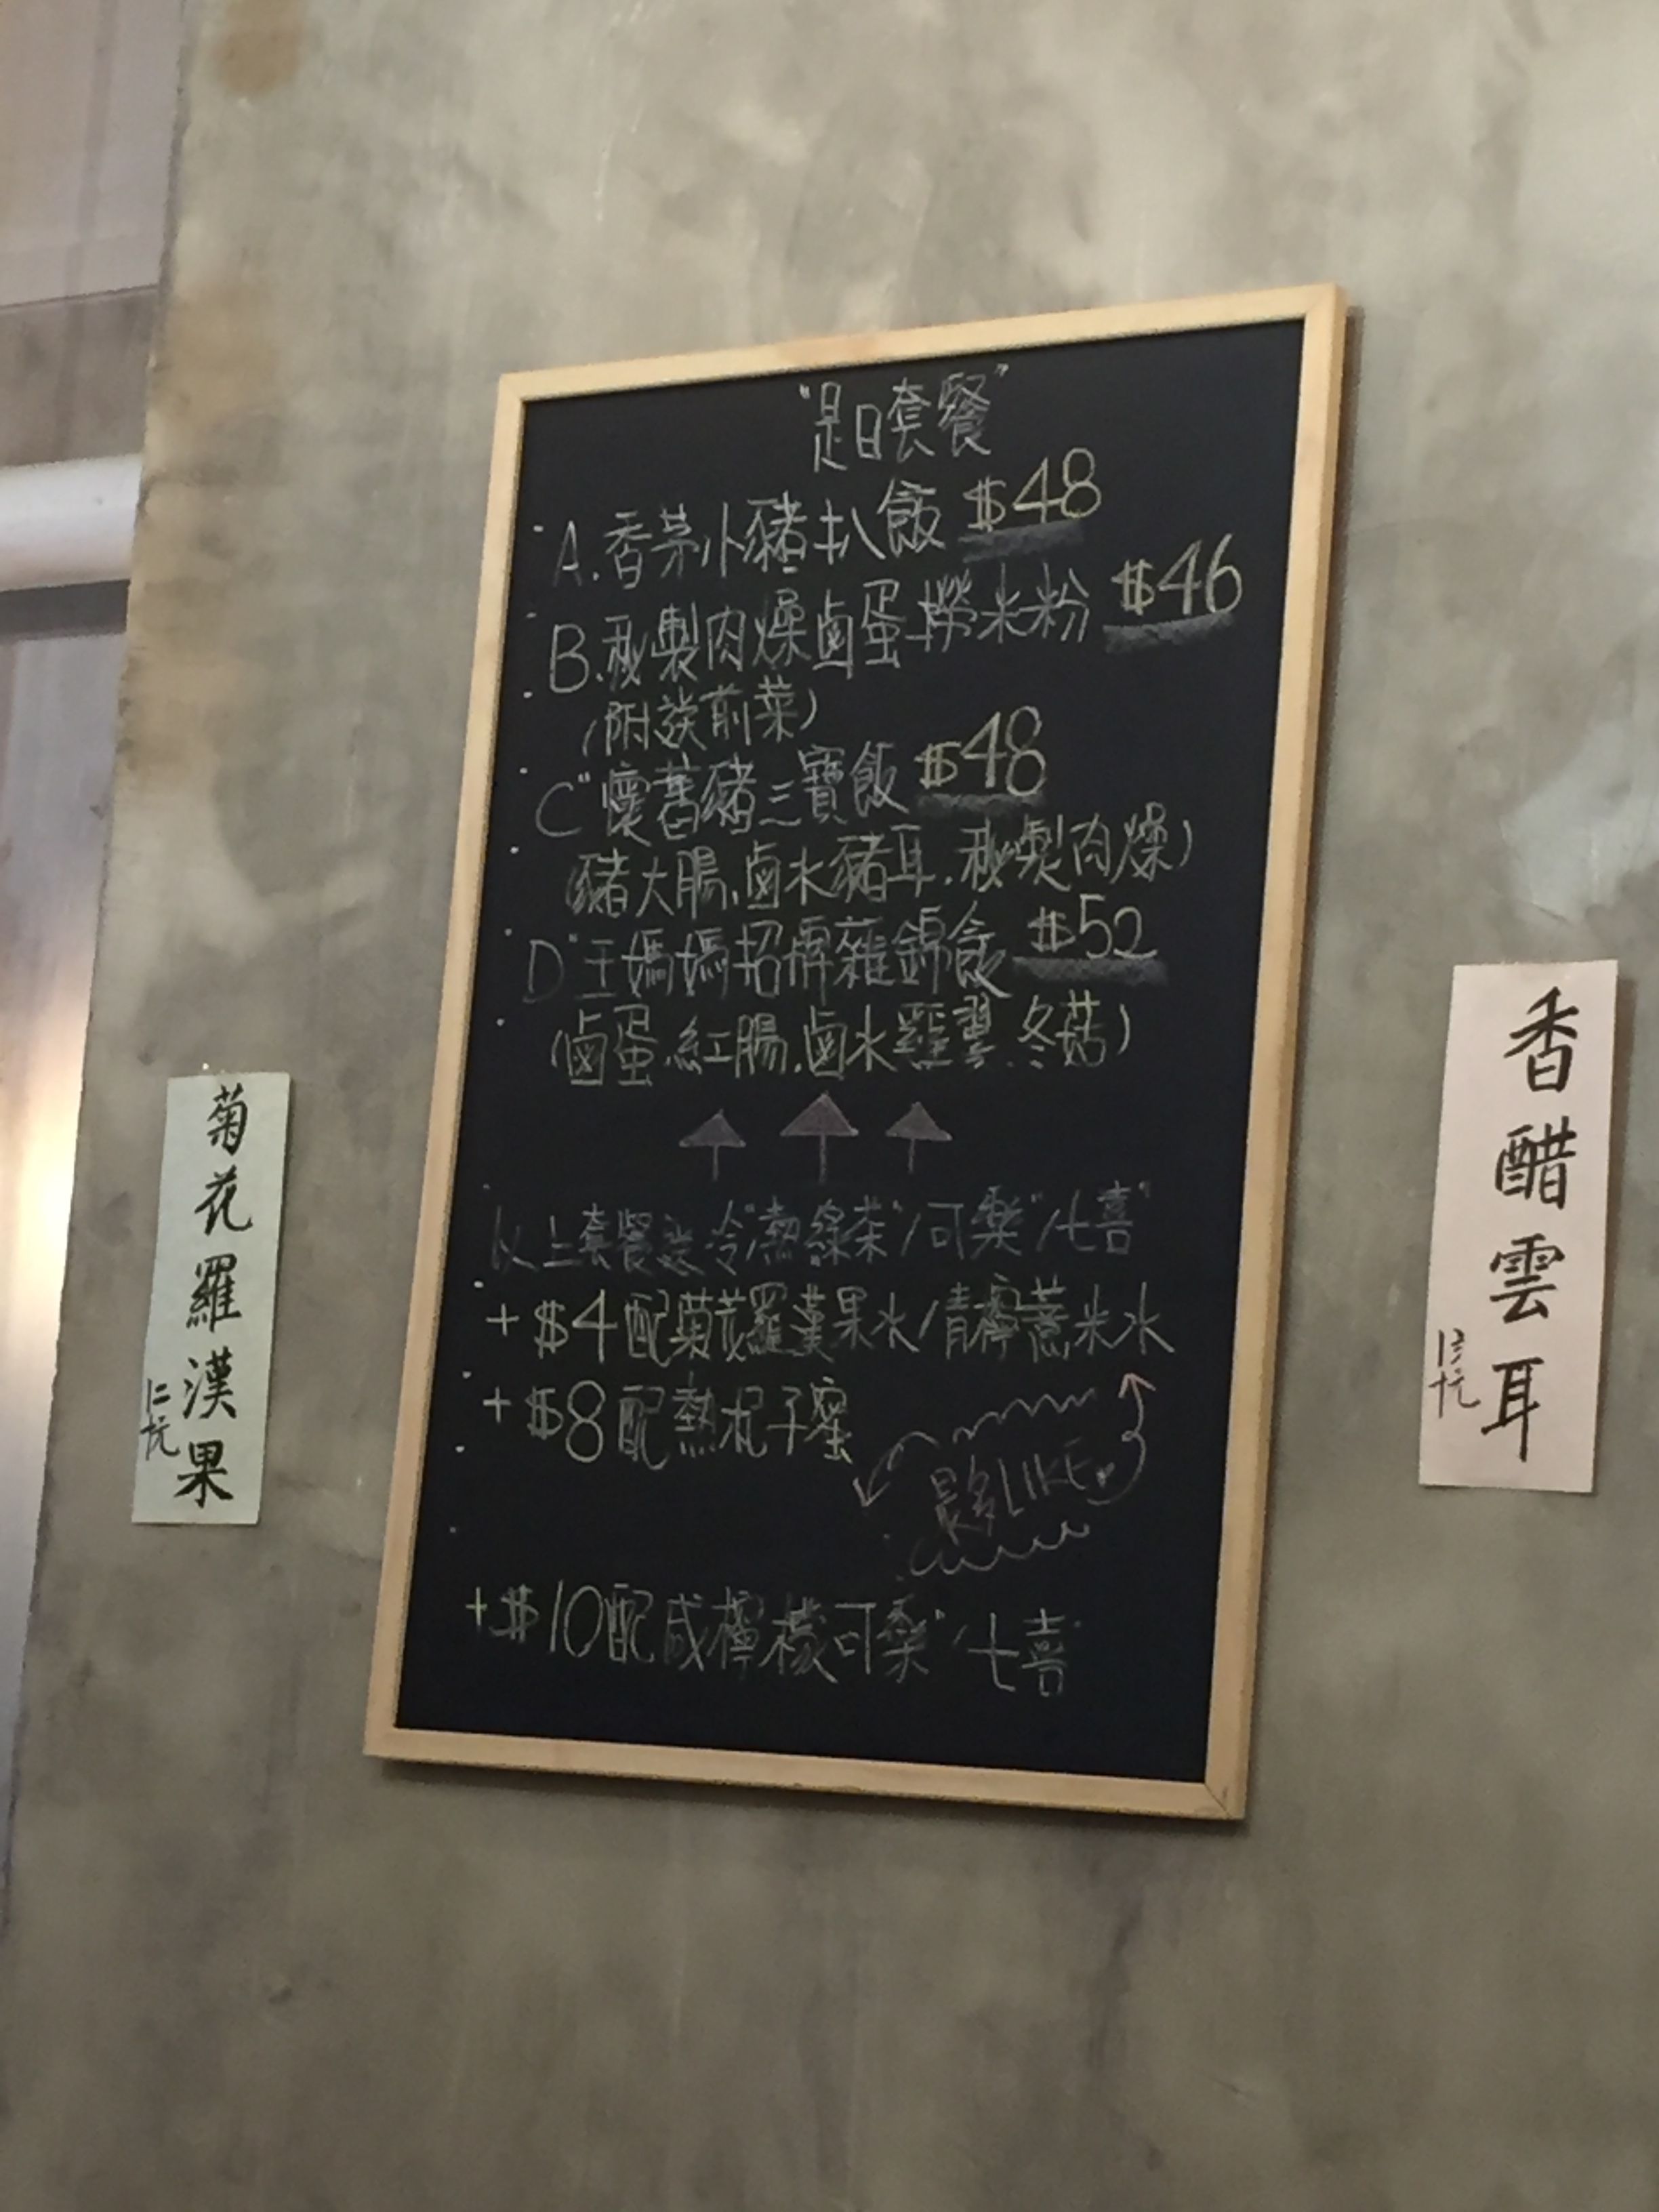 "是日套餐"
A.香茅小豬扒飯 $48
B.秘製肉燥鹵蛋撈米粉 $46
(附送前菜)
C"懷舊豬三寶飯 $48
(豬大腸.鹵水豬耳.秘製肉燥)
D"王媽媽招牌雜錦飯 $52
(鹵蛋.紅腸.鹵水雞翼.冬菇)
以上套餐送冷"熱綠茶"/可樂"/七喜"
+$4配菊花羅漢果水/青檸薏米水
+$8配熱杞子蜜
最多LIKE
+$10配咸檸檬可樂"/七喜"
菊花羅漢果
香醋雲耳